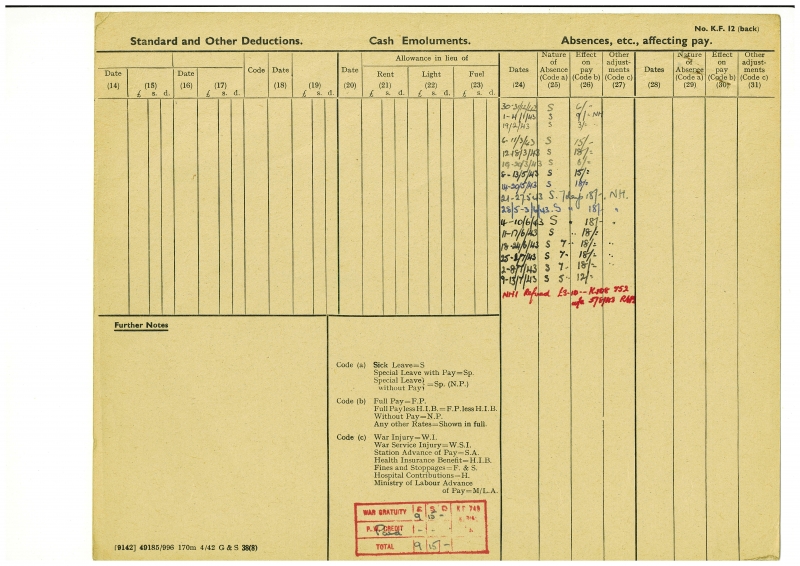 No. K.F. 12 (back)
Standard and Other Deductions. Cash Emoluments. Absences, etc., affecting pay.
Allowance in lieu of
Date (14) (15) £ s. d. Date (16) (17) £ s. d. Code Date (18) (19) £ s. d. Date (20) Rent (21) £ s. d. Light (22) £ s. d. Fuel (23) £ s. d. Dates (24) Nature of Absence (Code a) (25) Effect on pay (Code b) (26) Other adjust-ments (Code c) (27) Dates (28) Nature of Absence (Code a) (29) Effect on pay (Code b) (30) Other adjust-ments (Code c) (31)
S 6/-
1-4/1/43 S 9/- NH
19/2/43 S 3/-
6-11/3/43 S 15/-
12-18/3/43 S 18/-
19-20/3/43 S 6/-
8-13/5/43 S 15/-
14-20/5/43 S 18/-
21-27/5/43 S. 7 days 18/-, NH.
28/5-3/6/43 S " 18/- "
4-10/6/43 S " 18/- "
11-17/6/43 S " 18/-
18-24/6/43 S 7 " 18/- "
25-1/7/43 S 7 " 18/- "
2-8/7/43 S 7 " 18/- "
9-13/7/43 S 5 " 12/-
NHI Refund £3-10-
5/8/43
Further Notes
Code (a) Sick Leave=S
Special Leave with Pay=Sp.
Special Leave}
without Pay} =Sp. (N.P.)
Code (b) Full Pay=F.P.
Full Pay less H.I.B.=F.P. less H.I.B.
Without Pay=N.P.
Any other Rates=Shown in full.
Code (c) War Injury=W.I.
War Service Injury=W.S.I.
Station Advance of Pay=S.A.
Health Insurance Benefit=H.I.B.
Fines and Stoppages=F. & S.
Hospital Contributions=H.
Ministry of Labour Advance
of Pay=M/L.A.
WAR GRATUITY £ S D KF 748
9 15 -
P.W. CREDIT - - -
Paid
TOTAL 9 15 -
[9142] 49185/996 170m 4/42 G & S 38(8)